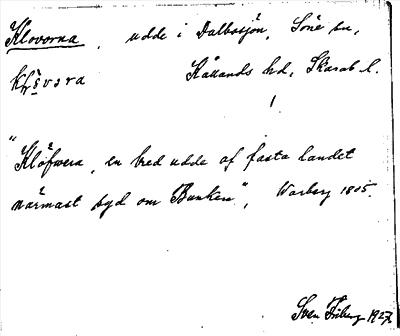 Klovorna, udde i Dalbosjön, Sunne sn,
Kållands hd, Skarab. l.
"Klöfwera, en bred udde af fasta landet
närmast syd om Bunken", Warberg 1805.
Sven Friberg 1927.